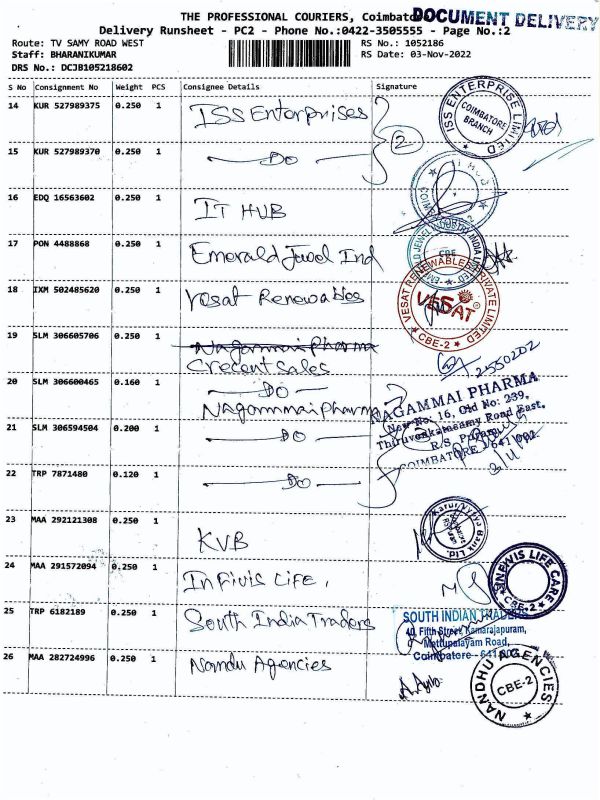 THE PROFESSIONAL COURIERS, Coimbato
DOCUMENT DELIVERY
Delivery Runsheet - PC2 - Phone No.:0422-3505555 - Page No.:2
Route: TV SAMY ROAD WEST
RS No.: 1052186
Staff: BHARANIKUMAR
RS Date: 03-Nov-2022
DRS No.: DCJB105218602
S No Consignment No Weight PCS Consignee Details Signature
14 KUR 527989375 0.250 1 ISS Enterprises
ISS ENTERPRISE LIMITED
COIMBATORE
BRANCH
2
15 KUR 527989370 0.250 1 Do
16 EDQ 16563602 0.250 1 IT HUB
17 PON 4488868 0.250 1 Emerald Jewel Ind
EMERALD JEWEL INDUSTRY INDIA LIMITED
CBE
18 IXM 502485620 0.250 1 Vesat Renewables
VESAT RENEWABLE PRIVATE LIMITED
VESAT
CBE-2
19 SLM 306605706 0.250 1 Nagammai Pharma
Crecent Sales
2550202
20 SLM 306600465 0.160 1 Do
Nagammai Pharma
NAGAMMAI PHARMA
New No: 16, Old No: 239,
Thiruvenkatasamy Road East,
R.S. Puram,
COIMBATORE - 641 002
21 SLM 306594504 0.200 1 Do
22 TRP 7871480 0.120 1 Do
23 MAA 292121308 0.250 1 KVB
Karur Vysya Bank Ltd.
24 MAA 291572094 0.250 1 Infivis Life,
NEWIS LIFE CARE
CBE-2
25 TRP 6182189 0.250 1 South India Traders
SOUTH INDIAN TRADERS
40, Fifth Street, Kamarajapuram,
Mettupalayam Road,
Coimbatore - 641 002
26 MAA 282724996 0.250 1 Nandu Agencies
NANDHU AGENCIES
CBE-2